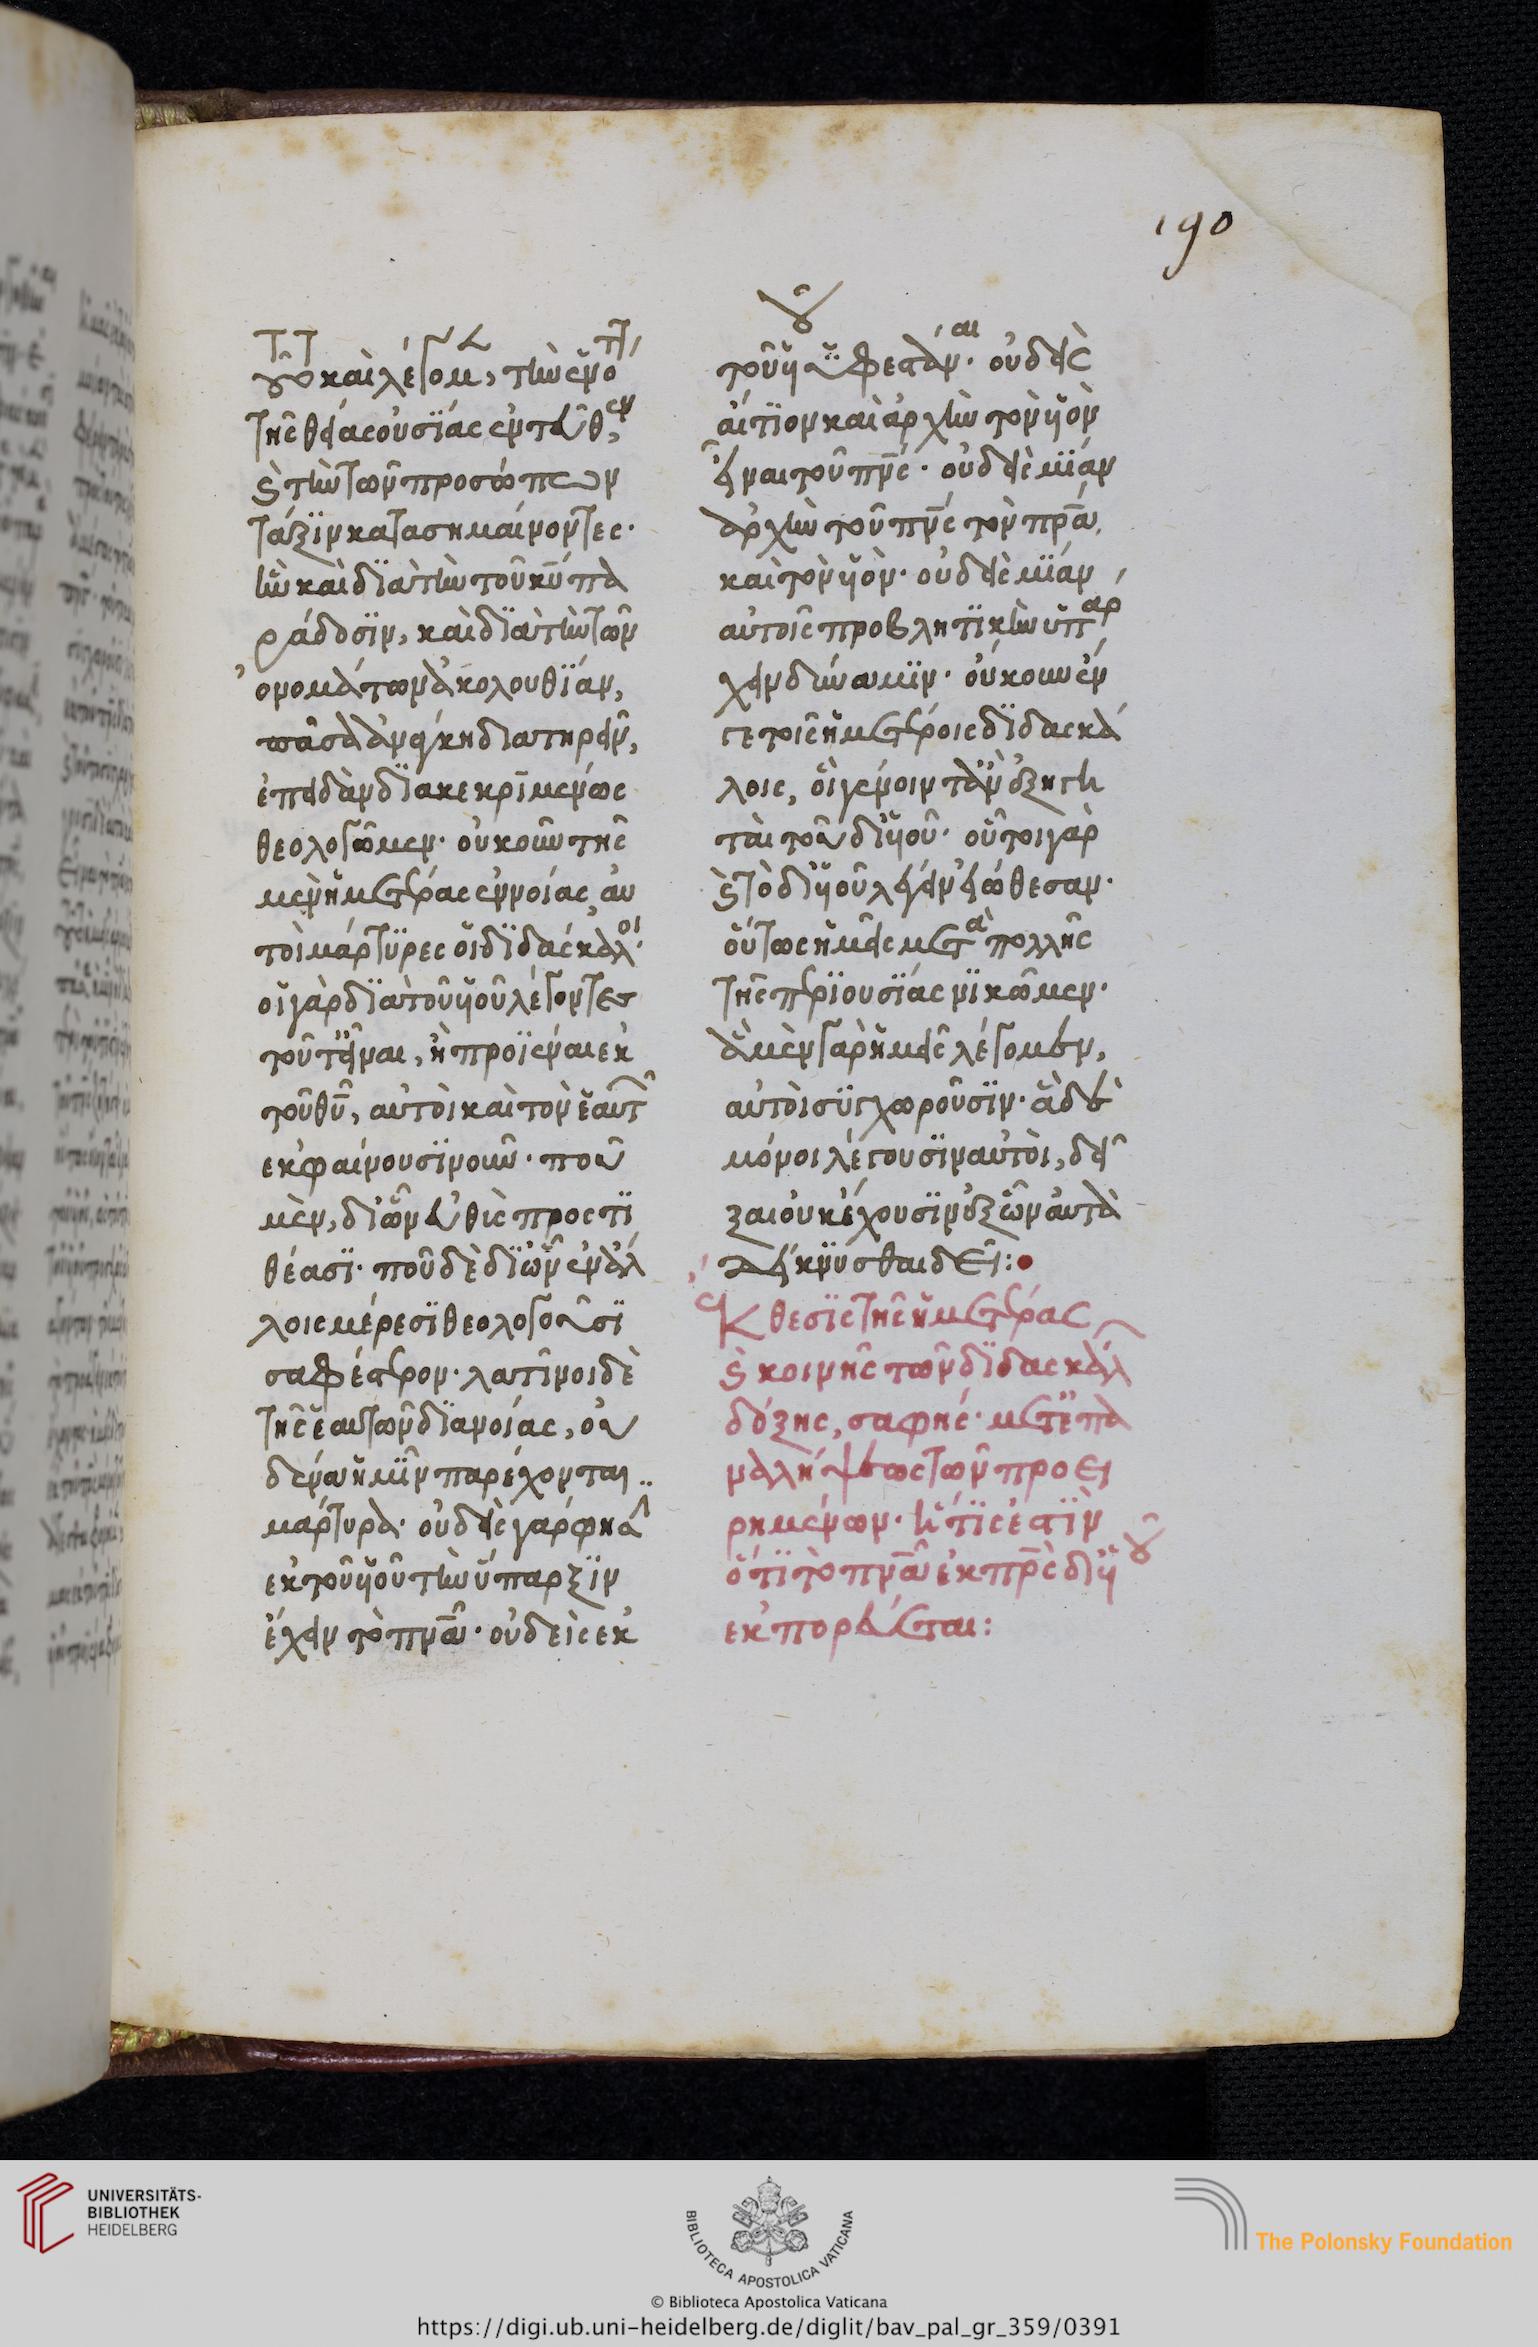 190
καὶ λέγομεν, τὴν ἑνότητα
τῆς θείας οὐσίας ἐντεῦθεν,
καὶ τὴν τῶν προσώπων
τάξϊν κατασημαίνοντες·
ἣν καὶ δϊὰ τὴν τοῦ κυ πα
ράδοσϊν, καὶ δϊὰ τὴν τῶν
ὀνομάτων ἀκολουθΐαν,
πᾶσα ἀνάγκη διατηρεῖν,
ἐπειδὰν δϊακεκρϊμένως
θεολογῶμεν· οὐκοῦν τῆς
μὲν ἡμετέρας ἐννοίας, αὐ
τοὶ μάρτϋρες οἱ δϊδάσκαλοι·
οἱ γὰρ δϊὰ τοῦ υἱοῦ λέγοντες
τοῦτο εἶναι, ἢ προϊέναι ἐκ
τοῦ θυ, αὐτοὶ καὶ τὸν ἑαυτῶν
ἐκφαίνουσϊ νοῦν· ποῦ
μὲν, δι' ὧν εὐθὺς προστϊ
θέασϊ· ποῦ δὲ δϊ' ὧν ἐν ἄλ
λοις μέρεσϊ θεολογοῦσϊ
σαφέστερον· λατῖνοι δὲ
τῆς ἑαυτῶν δϊανοίας, οὐ
δένα ἡμῖν παρέχονται
μάρτυρα· οὐδεὶς γάρ φησϊ
ἐκ τοῦ υἱοῦ τὴν ὕπαρξϊν
ἔχειν τὸ πνα· οὐδεὶς ἐκ
τοῦ υἱοῦ ὑφεστάναι· οὐδεὶς
αἴτϊον καὶ ἀρχὴν τὸν υἱὸν
εἶναι τοῦ πνς· οὐδεὶς μΐαν
ἀρχὴν τοῦ πνς τὸν πρα,
καὶ τὸν υἱὸν· οὐδεὶς μΐαν
αὐτοῖς προβλητϊκὴν ὑπάρ
χειν δύναμϊν· οὔκουν ἕν
γε τοῖς ἡμετέροις δϊδασκά
λοις, οἱ γένοιντ' ἂν ἐξηγη
ταὶ τοῦ δι' υἱοῦ· οὗτοι γὰρ
καὶ τὸ δι' υἱοῦ λέγειν εἰώθεσαν·
οὕτως ἡμεῖς μετὰ πολλῆς
τῆς περϊουσΐας νϊκῶμεν·
ἃ μὲν γὰρ ἡμεῖς λέγομεν,
αὐτοὶ συγχωροῦσϊν· ἃ δὲ
μόνοι λέγουσϊν αὐτοὶ, δεῖ
ξαι οὐκ ἔχουσϊν ἐξ ὧν αὐτὰ
δείκνυσθαι δεῖ:
Ἔκθεσϊς τῆς ἡμετέρας
καὶ κοινῆς τῶν δϊδασκάλων
δόξης, σαφής· μετ' ἐπα
ναλήψεως τῶν προει
ρημένων· ἥτϊς ἐστϊν
ὅτϊ τὸ πνα ἐκ πρς δι' υἱοῦ
ἐκπορεύεται:
UNIVERSITÄTS-
BIBLIOTHEK
HEIDELBERG
BIBLIOTECA APOSTOLICA VATICANA
The Polonsky Foundation
© Biblioteca Apostolica Vaticana
https://digi.ub.uni-heidelberg.de/diglit/bav_pal_gr_359/0391